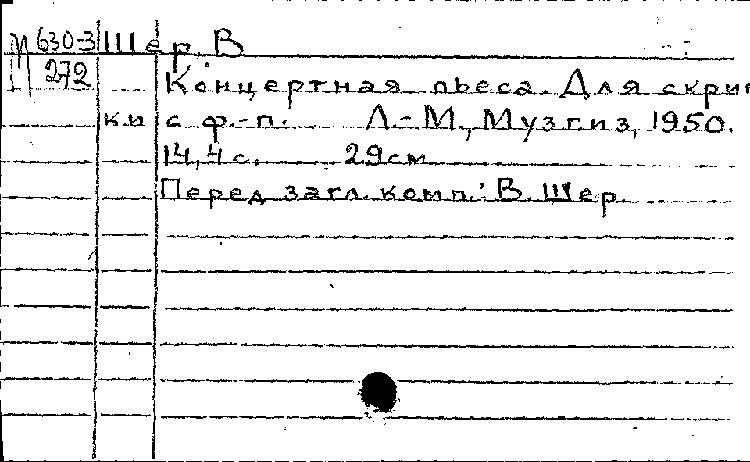 М 630-3 Шер, В
272 Концертная пьеса. Для скрип
ки с ф.-п. Л.-М., Музгиз, 1950.
14, 4 с. 29 см
Перед загл. комп.: В. Шер